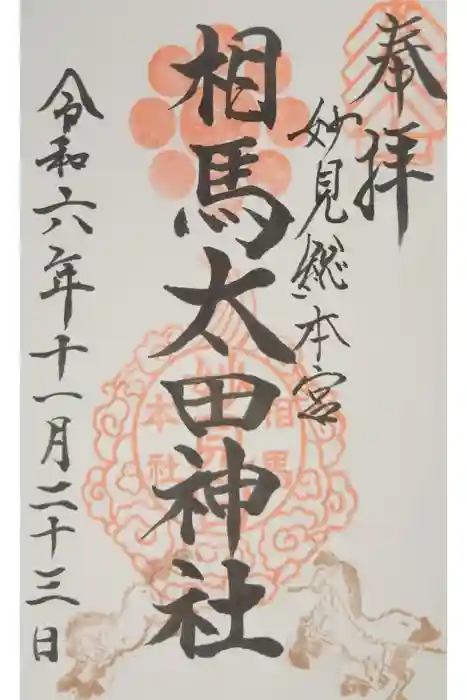 奉拝
妙見総本宮
相馬太田神社
令和六年十一月二十三日
相馬
本社